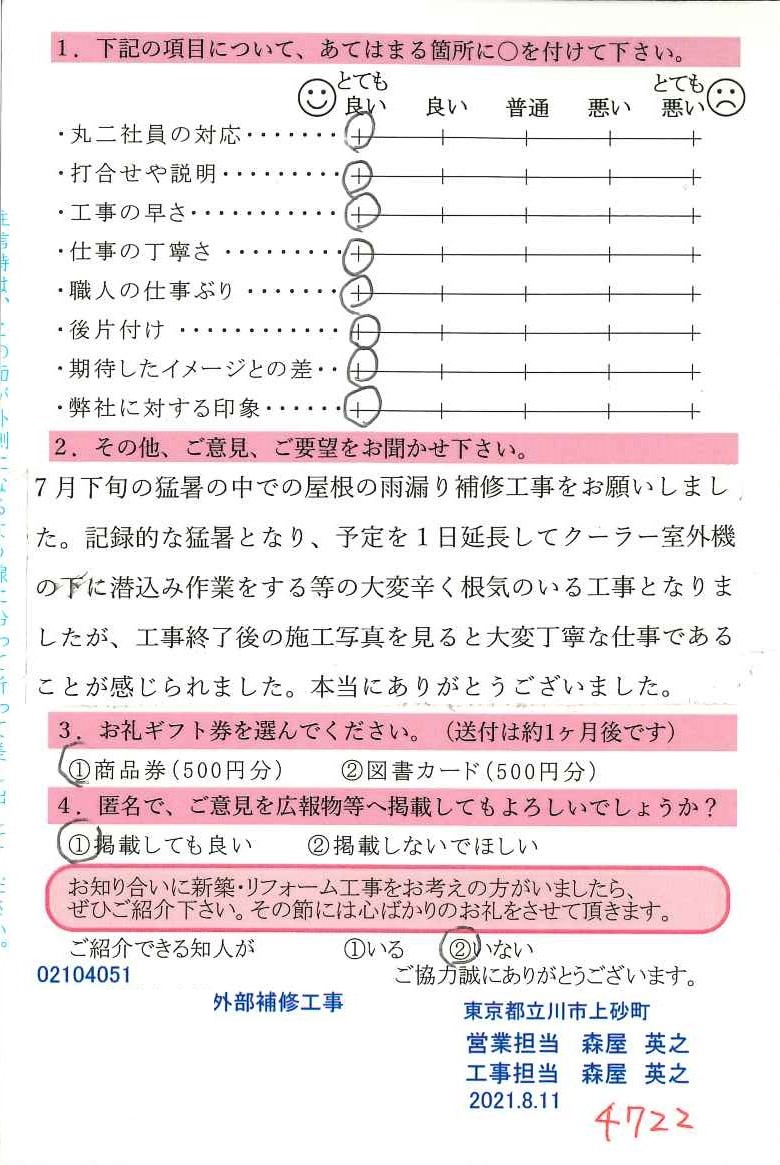 1．下記の項目について、あてはまる箇所に○を付けて下さい。
とても良い 良い 普通 悪い とても悪い
・丸二社員の対応・・・・・・・
・打合せや説明・・・・・・・・・
・工事の早さ・・・・・・・・・・・
・仕事の丁寧さ ・・・・・・・・・
・職人の仕事ぶり ・・・・・・・
・後片付け ・・・・・・・・・・・・
・期待したイメージとの差・・
・弊社に対する印象・・・・・・
2．その他、ご意見、ご要望をお聞かせ下さい。
7月下旬の猛暑の中での屋根の雨漏り補修工事をお願いしまし
た。記録的な猛暑となり、予定を1日延長してクーラー室外機
の下に潜込み作業をする等の大変辛く根気のいる工事となりま
したが、工事終了後の施工写真を見ると大変丁寧な仕事である
ことが感じられました。本当にありがとうございました。
3．お礼ギフト券を選んでください。（送付は約1ヶ月後です）
①商品券（500円分） ②図書カード（500円分）
4．匿名で、ご意見を広報物等へ掲載してもよろしいでしょうか？
①掲載しても良い ②掲載しないでほしい
お知り合いに新築・リフォーム工事をお考えの方がいましたら、
ぜひご紹介下さい。その節には心ばかりのお礼をさせて頂きます。
ご紹介できる知人が ①いる ②いない
02104051 ご協力誠にありがとうございます。
外部補修工事 東京都立川市上砂町
営業担当 森屋 英之
工事担当 森屋 英之
2021.8.11
4722